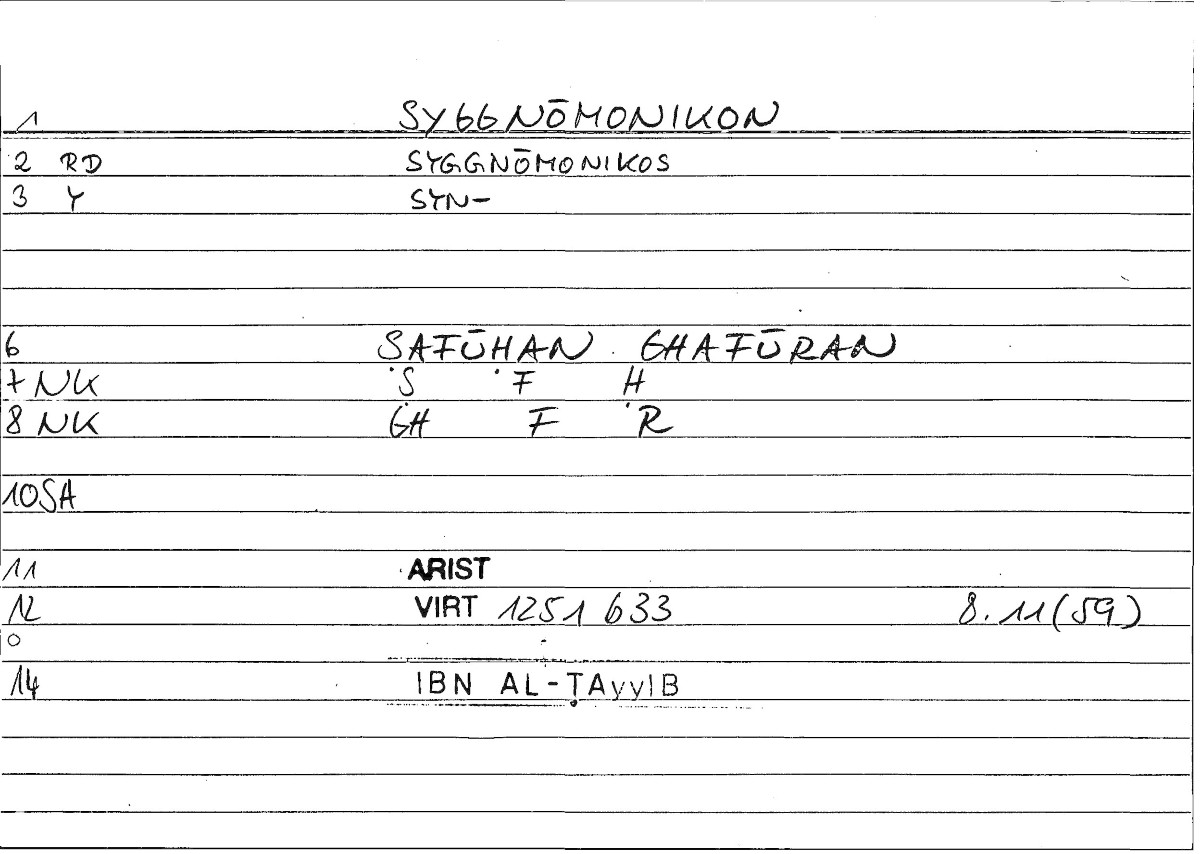 1 SYGGNŌMONIKON
2 RD SYGGNŌMONIKOS
3 Y SYN-
6 SAFŪHAN GHAFŪRAN
7 NK S F H
8 NK GH F R
10 SA
11 ARIST
12 VIRT 1251 633 8.11(59)
O
14 IBN AL-ṬAyyIB